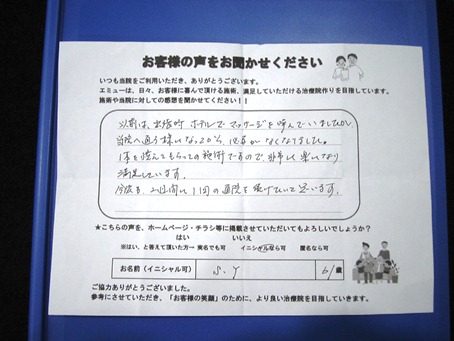 お客様の声をお聞かせください
いつも当院をご利用いただき、ありがとうございます。
エミューは、日々、お客様に喜んで頂ける施術、満足していただける治療院作りを目指しています。
施術や当院に対しての感想を聞かせてください！！
以前は、出張時ホテルでマッサージを呼んでいましたが、
当院へ通う様になってから、必要がなくなりました。
体を の施術ですので、非常に楽になり
満足しています。
今後も、2週間に1回の通院を続けたいと思います。
★こちらの声を、ホームページ・チラシ等に掲載させていただいてもよろしいでしょうか？
はい いいえ
※はい、と答えて頂いた方→ 実名でも可 イニシャルなら可 匿名なら可
お名前（イニシャル可） S.Y 61歳
ご協力ありがとうございました。
参考にさせていただき、「お客様の笑顔」のために、より良い治療院を目指していきます。